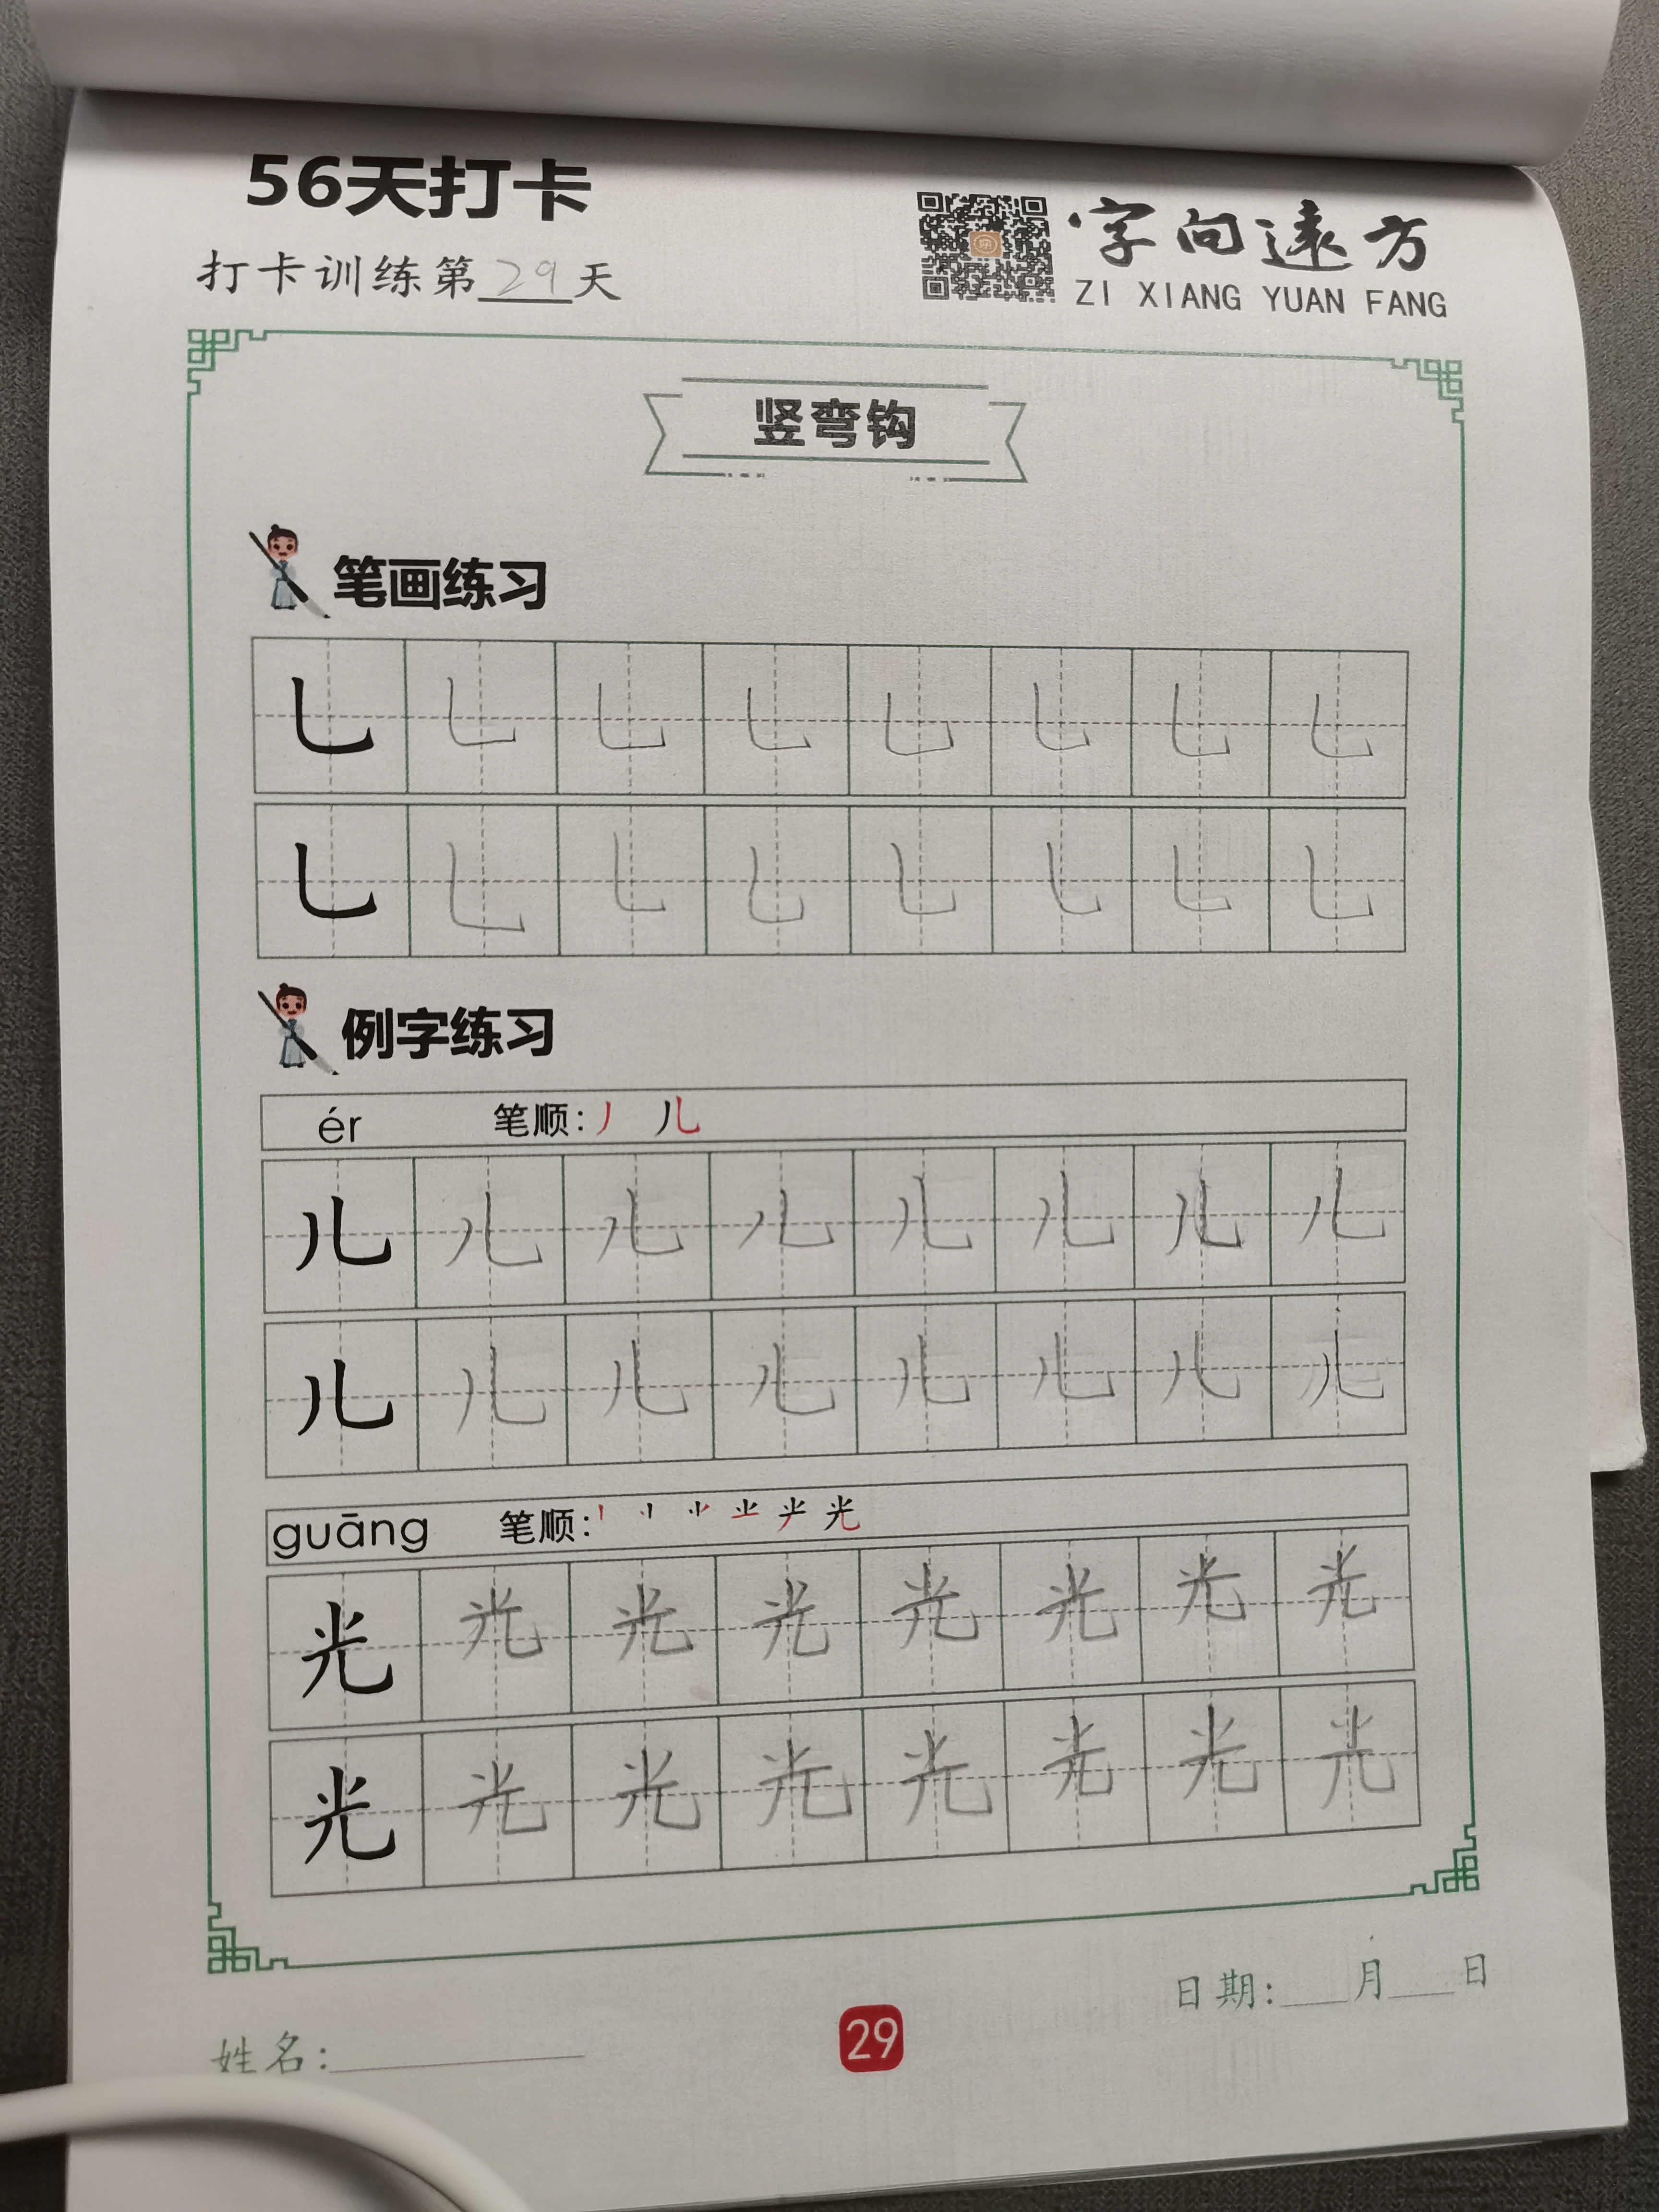 56天打卡
打卡训练第29天
字向遠方
ZI XIANG YUAN FANG
竖弯钩
笔画练习
乚 乚 乚 乚 乚 乚 乚 乚
乚 乚 乚 乚 乚 乚 乚 乚
例字练习
ér 笔顺: 丿 儿
儿 儿 儿 儿 儿 儿 儿 儿
儿 儿 儿 儿 儿 儿 儿 儿
guāng 笔顺: 光
光 光 光 光 光 光 光 光
光 光 光 光 光 光 光 光
日期:___月___日
姓名:
29